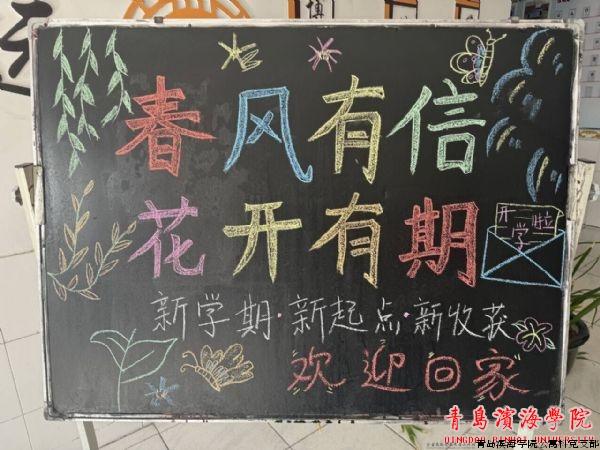 春风有信
花开有期
开学啦
新学期·新起点·新收获
欢迎回家
青岛滨海学院
QINGDAO BINHAI UNIVERSITY
青岛滨海学院公寓科党支部